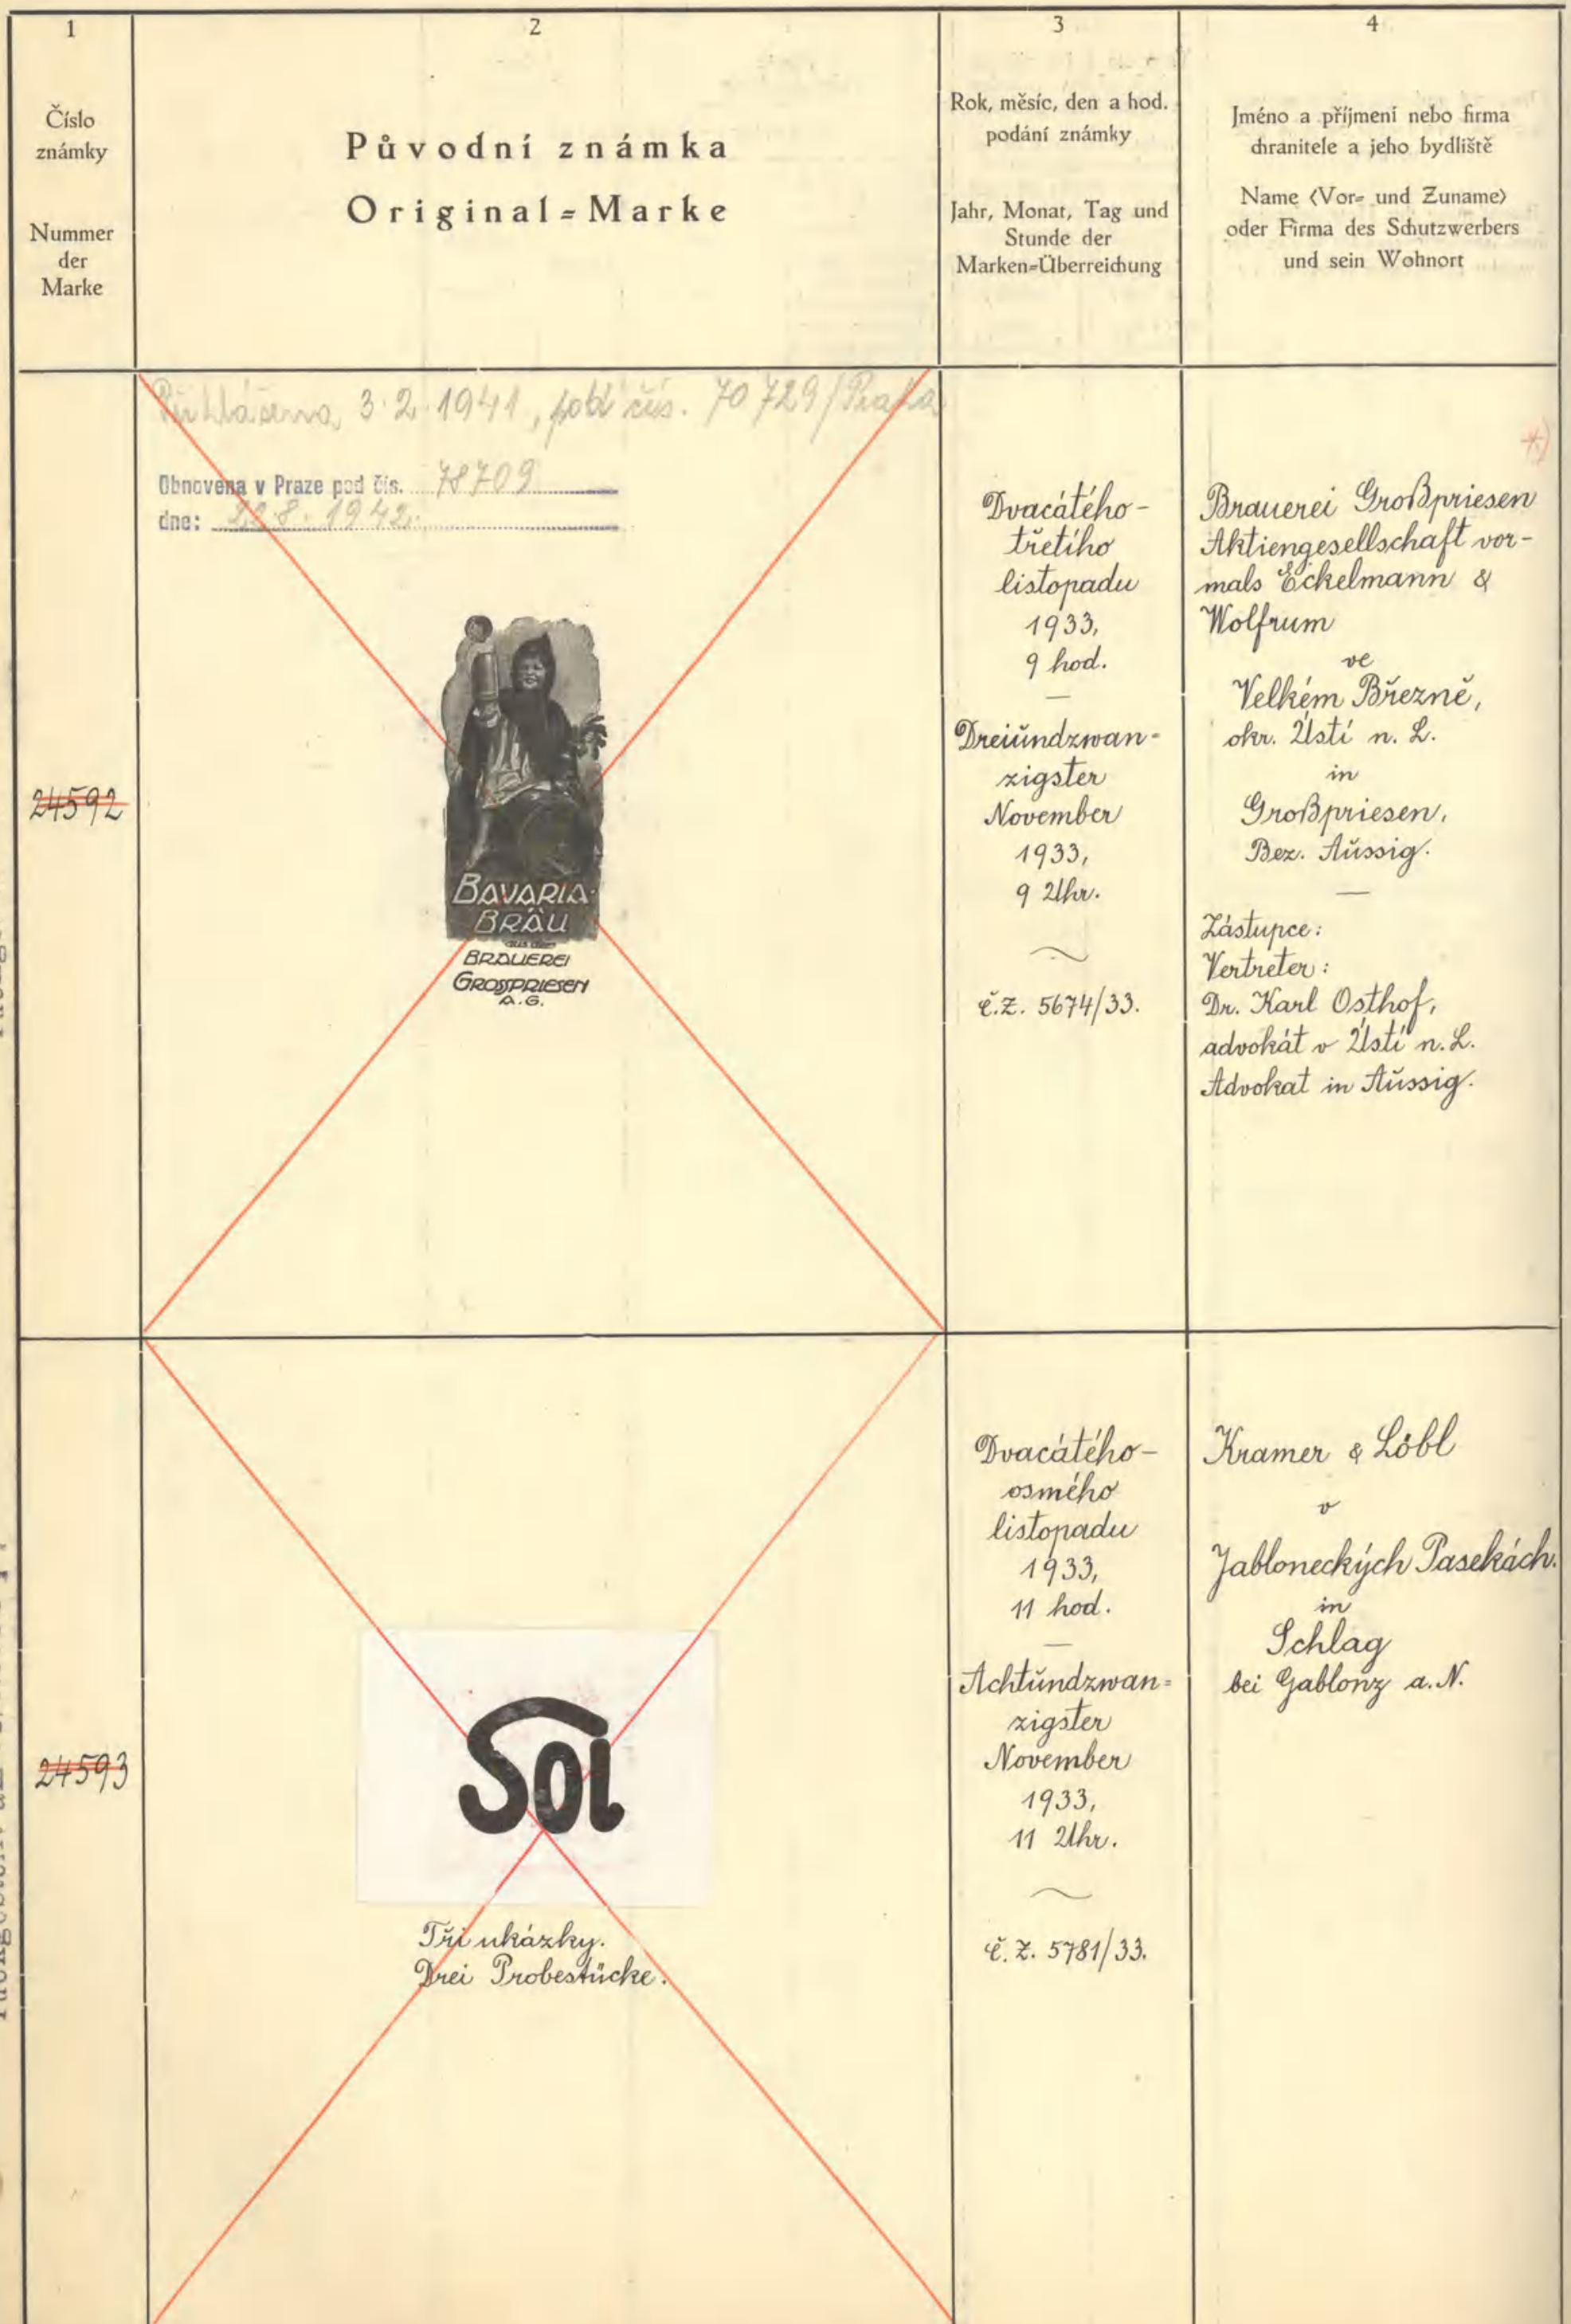 1
Číslo
známky
Nummer
der
Marke
2
Původní známka
Original-Marke
3
Rok, měsíc, den a hod.
podání známky
Jahr, Monat, Tag und
Stunde der
Marken-Überreichung
4
Jméno a příjmení nebo firma
chranitele a jeho bydliště
Name (Vor- und Zuname)
oder Firma des Schutzwerbers
und sein Wohnort
24592
3.2.1941, pod čís. 70729/Praha
Obnovena v Praze pod čís. 78709
dne: 22.8.1942.
BAVARIA-
BRÄU
aus der
BRAUEREI
GROSSPRIESEN
A.G.
Dvacátého-
třetího
listopadu
1933,
9 hod.
—
Dreiundzwan-
zigster
November
1933,
9 Uhr.
č.z. 5674/33.
*)
Brauerei Großpriesen
Aktiengesellschaft vor-
mals Eckelmann &
Wolfrum
ve
Velkém Březně,
okr. Ústí n. L.
in
Großpriesen,
Bez. Aussig.
—
Zástupce:
Vertreter:
Dr. Karl Osthof,
advokát v Ústí n. L.
Advokat in Aussig.
24593
Sol
Tři ukázky.
Drei Probestücke.
Dvacátého-
osmého
listopadu
1933,
11 hod.
—
Achtundzwan-
zigster
November
1933,
11 Uhr.
č.z. 5781/33.
Kramer & Löbl
v
Jabloneckých Pasekách.
in
Schlag
bei Gablonz a. N.